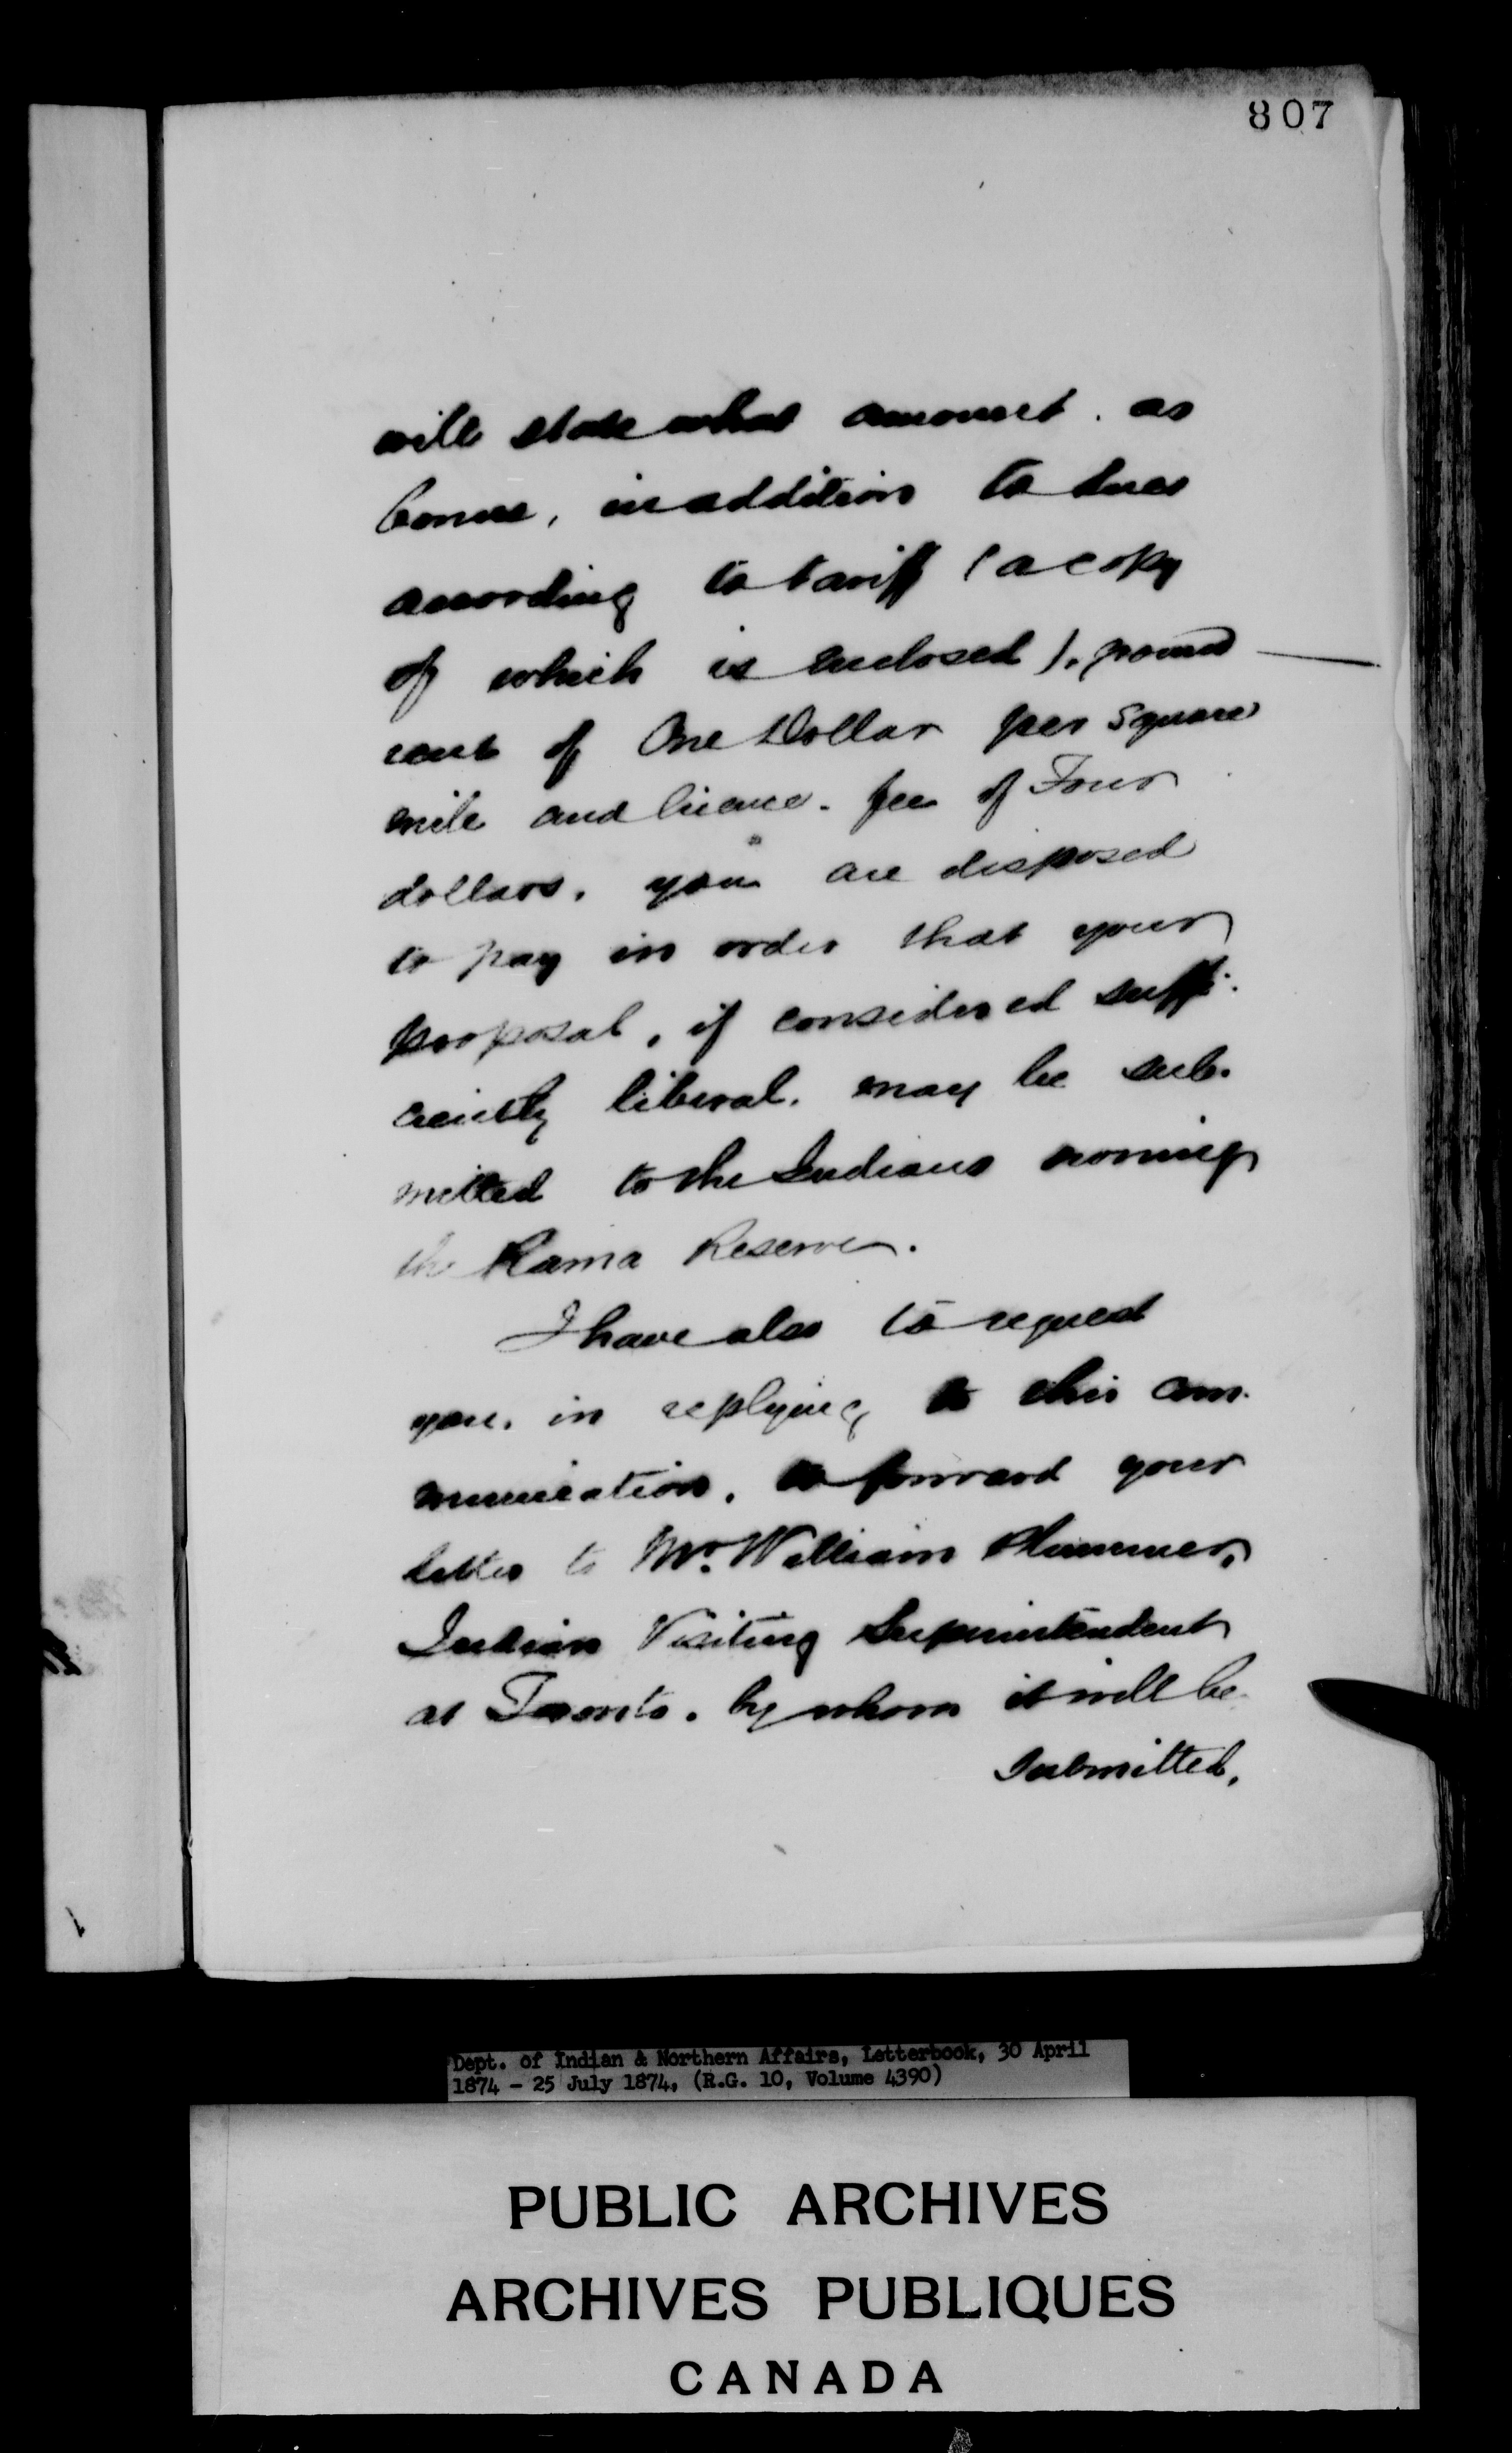 807
will state what amount. as
bonus, in addition to dues
according to tariff (a copy
of which is enclosed), ground
rent of One Dollar per Square
mile and licence. fee of Four
dollars, you are disposed
to pay in order that your
proposal, if considered suffi-
ciently liberal, may be sub-
mitted to the Indians owning
the Rama Reserve.
I have also to request
you, in replying to this com-
munication, to forward your
letter to Mr. William Plummer,
Indian Visiting Superintendent
at Toronto. by whom it will be
submitted,
Dept. of Indian & Northern Affairs, Letterbook, 30 April
1874 - 25 July 1874, (R.G. 10, Volume 4390)
PUBLIC ARCHIVES
ARCHIVES PUBLIQUES
CANADA